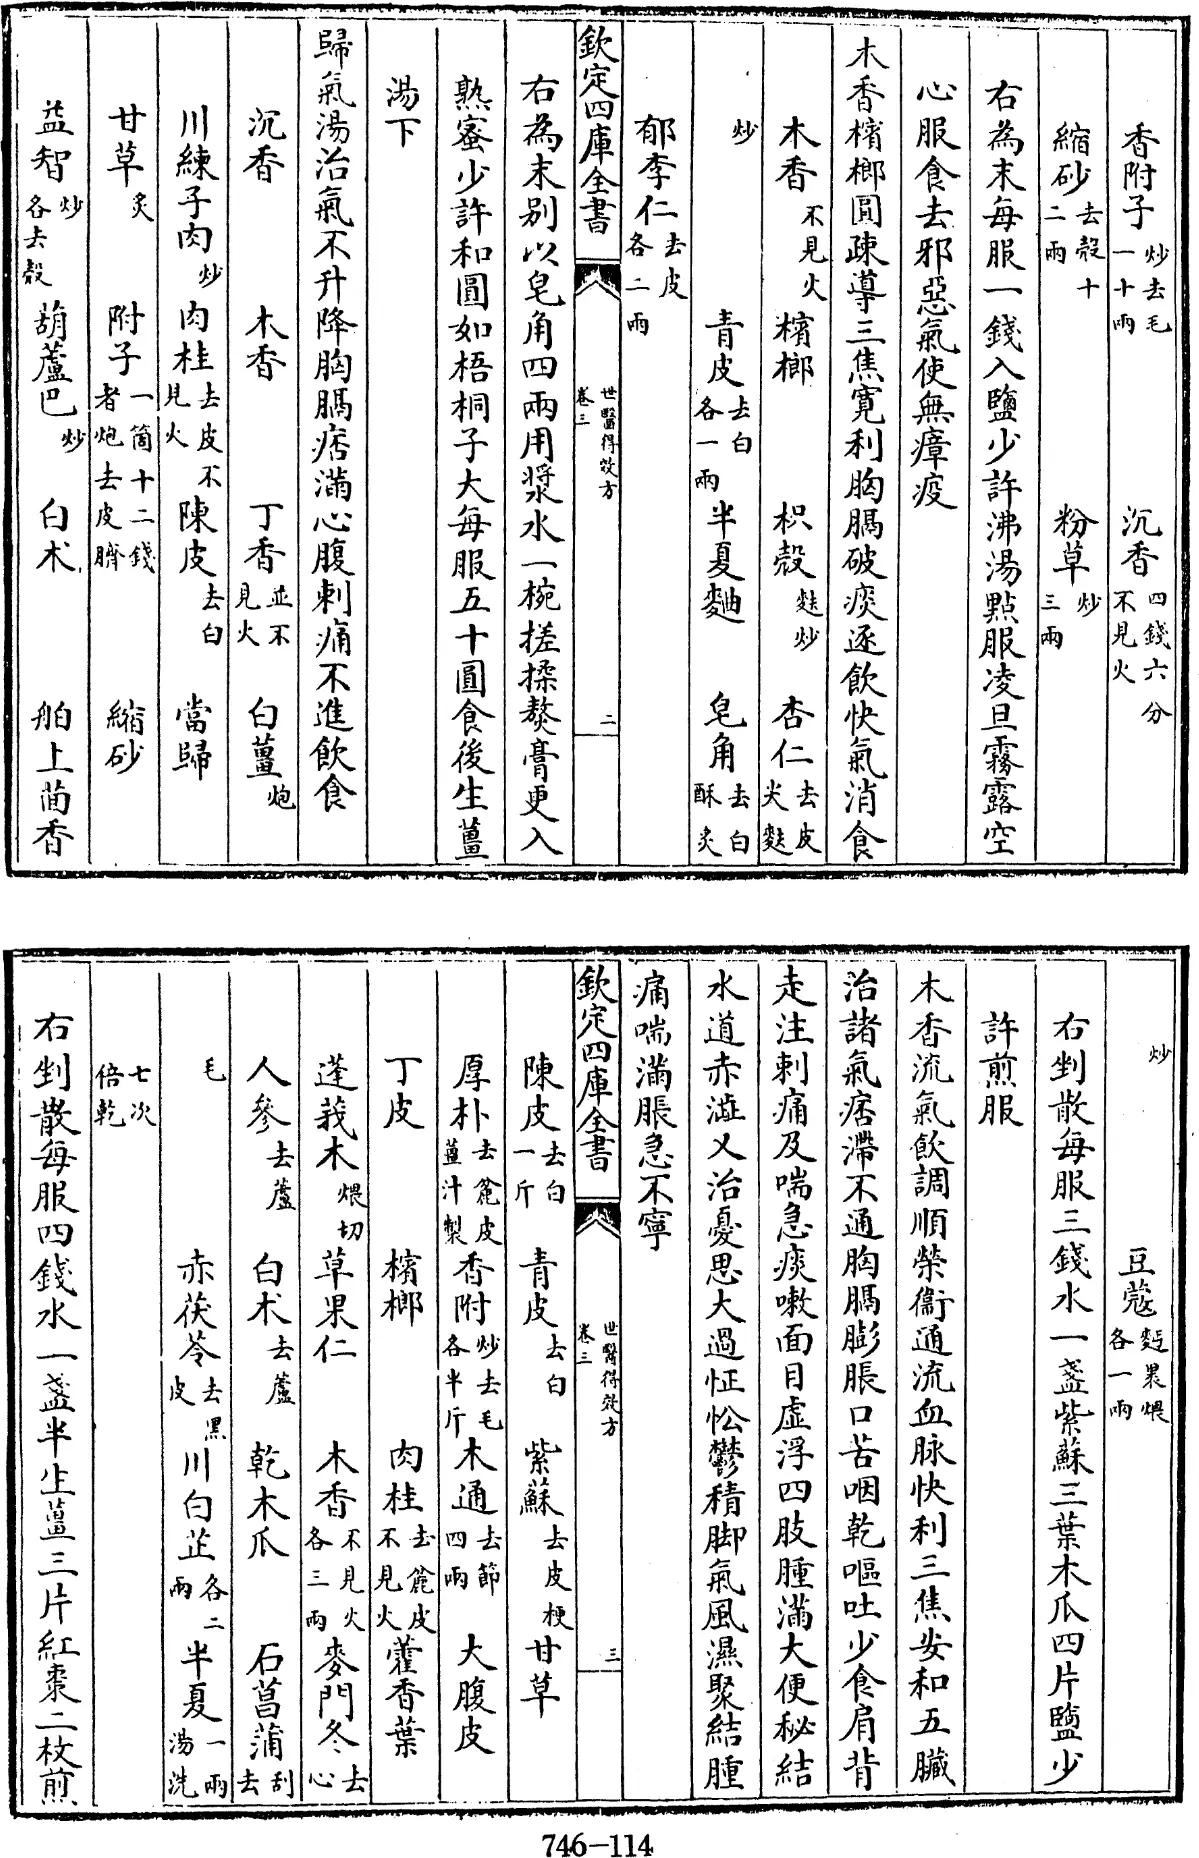 香附子炒去毛一十兩　沉香四錢六分不見火
縮砂去殻十二兩　粉草炒三兩
右為末每服一錢入鹽少許沸湯點服凌旦霧露空
心服食去邪惡氣使無瘴疫
木香檳榔圓疎導三焦寛利胸膈破痰逐飲快氣消食
木香不見火　檳榔　枳殻麩炒　杏仁去皮尖麩
炒　青皮去白各一兩　半夏麯　皂角去白酥炙
郁李仁去皮各二兩
欽定四庫全書　世醫得效方卷三　二
右為末别以皂角四兩用漿水一椀搓揉熬膏更入
熟蜜少許和圓如梧桐子大每服五十圓食後生薑
湯下
歸氣湯治氣不升降胸膈痞滿心腹刺痛不進飲食
沉香　木香　丁香並不見火　白薑炮
川練子肉炒　肉桂去皮不見火　陳皮去白　當歸
甘草炙　附子一箇十二錢者炮去皮臍　縮砂
益智炒各去殻　葫蘆巴炒　白术　舶上茴香
炒　豆蔻麪裹煨各一兩
右剉散每服三錢水一盞紫蘇三葉木瓜四片鹽少
許煎服
木香流氣飲調順榮衞通流血脉快利三焦安和五臟
治諸氣痞滯不通胸膈膨脹口苦咽乾嘔吐少食肩背
走注刺痛及喘急痰嗽面目虚浮四肢腫滿大便秘結
水道赤澁又治憂思大過怔忪鬱積脚氣風濕聚結腫
痛喘滿脹急不寧
欽定四庫全書　世醫得效方卷三　三
陳皮去白一斤　青皮去白　紫蘇去皮梗　甘草
厚朴去麄皮薑汁製　香附炒去毛各半斤　木通去節四兩　大腹皮
丁皮　檳榔　肉桂去麄皮不見火　藿香葉
蓬莪木煨切　草果仁　木香不見火各三兩　麥門冬去心
人參去蘆　白术去蘆　乾木瓜　石菖蒲刮去
毛　赤茯苓去黑皮　川白芷各二兩　半夏一兩湯洗
七次倍乾
右剉散每服四錢水一盞半生薑三片紅棗二枚煎
746-114